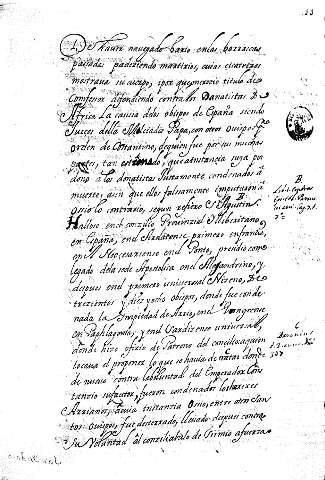 De hauer nauegado Osio en las borrascas
passadas padeziendo martirios, cuias cicatrizes
mostraua su cuerpo, i por que merecio titulo de
Confesor defendiendo contra los Donatistas de
Africa la causia delos obispos de España siendo
Jueces della Melciades Papa, con otros ouispos de
orden de Costantino, de quien fue por sus muchas
partes, tan estimado, que a su instancia suya per
dono a los donatistas justamente condenados a
muerte, aun que ellos falsamente imputauan a
Osio lo contrario, segun refiere S. Agustin.
Hallose en el conzilio Prouinzial Illiberitano
en España, en el Ganditense primero
en el Neocesariense en el Ponto, presidio como
legado dela sede Apostolica en el Alejandrino, y
despues en el primero uniuersal Nizeno, de
trezientos y diez y ocho obispos, donde fue conde
nada la impiedad de Arrio, en el Gangrense
en Paphlagonia, y en el Sardizense uniuersal,
donde hizo oficio de Patrono del concilio a quien
tocaua el proponer lo que se hauia de tratar donde
de nueuo contra la boluntad del Emperador Cons
tanzio su fautor, fueron condenados los herejes
Arrianos, a cuia instanzia Osio, entre otros San
tos Ouispos, fue desterrado, lleuado despues contra
su Voluntad al conciliabulo de Sirmio a fuerza
53
B
B
C